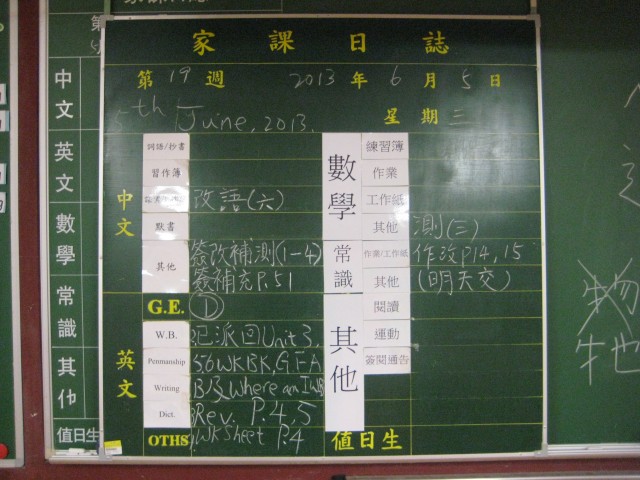 家課日誌
第19週 2013年6月5日
5th June, 2013. 星期三
中文
詞語/抄書
習作簿
改語(六)
默書
其他 簽改補測(1-4)
簽補充P.51
英文
G.E. ①
W.B. 已派回Unit 3,
Penmanship 56WKBK,GFA
Writing
Dict. Rev. P.4,5
OTHS WKSheet P.4
數學
練習簿
作業
工作紙
其他 測(三)
常識
作業/工作紙 作改P14,15
其他 (明天交)
其他
閱讀
運動
簽閱通告
值日生
第
中文
英文
數學
常識
其他
值日生
物
牠